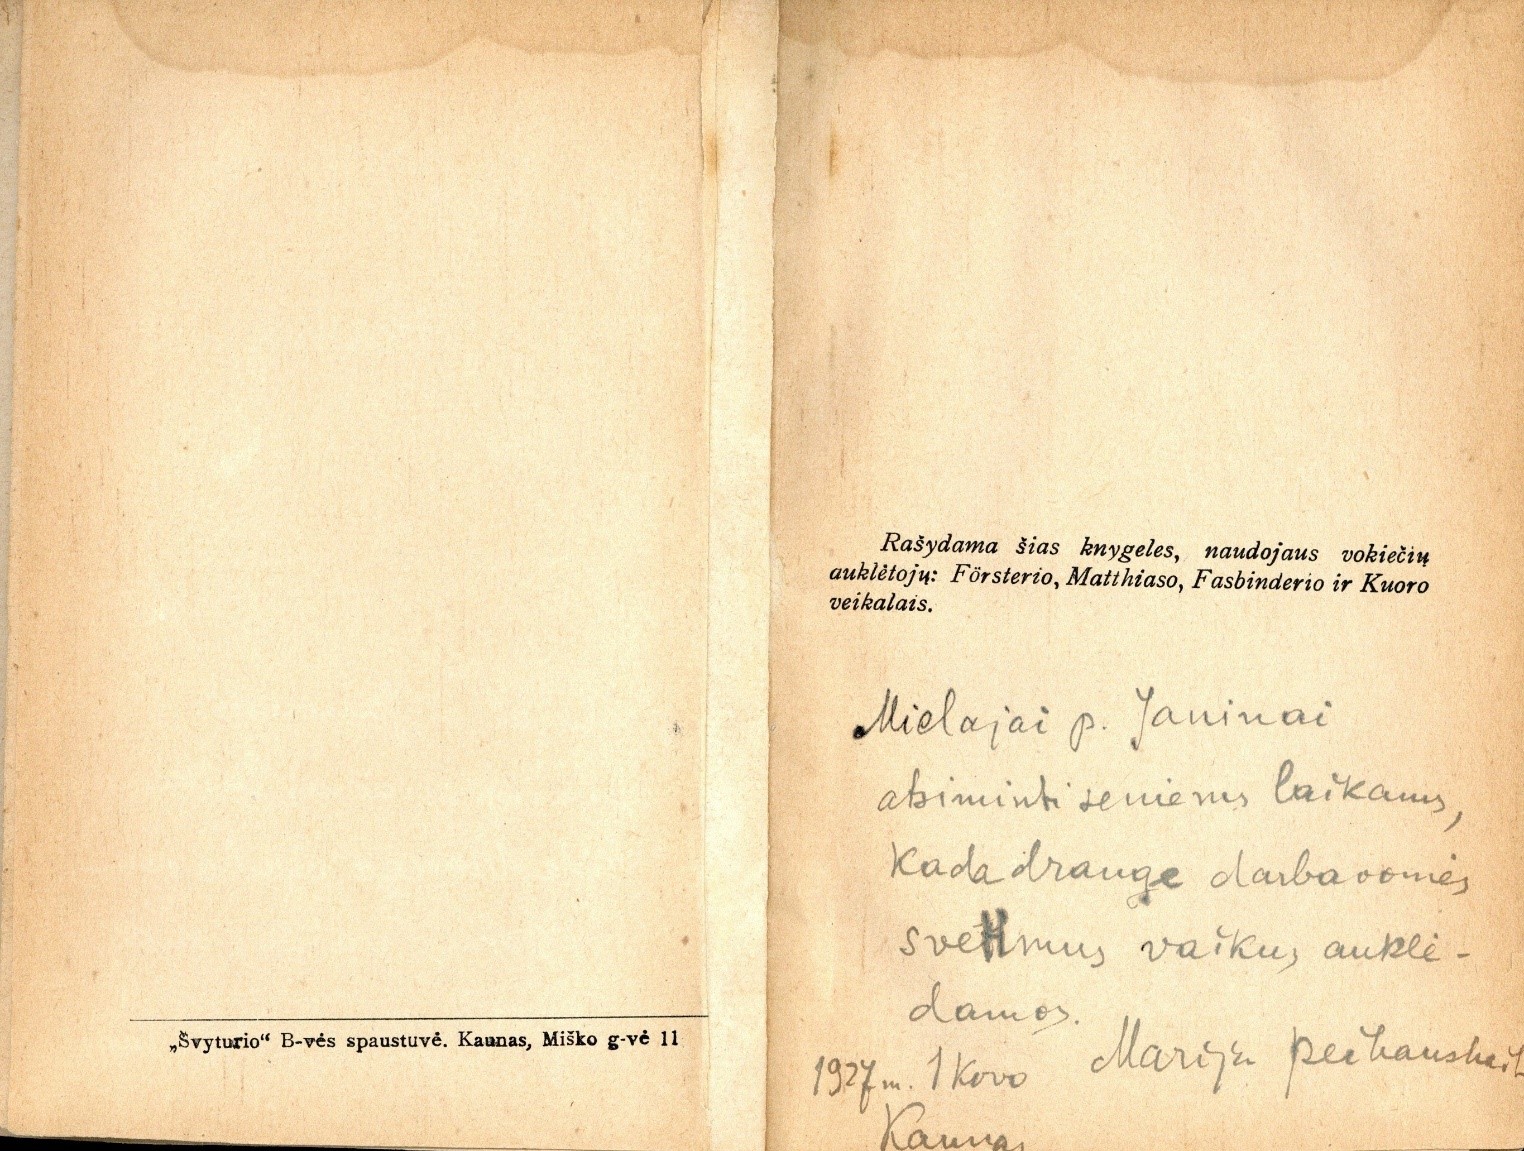 „Švyturio“ B-vės spaustuvė. Kaunas, Miško g-vė 11
Rašydama šias knygeles, naudojaus vokiečių
auklėtojų: Försterio, Matthiaso, Fasbinderio ir Kuoro
veikalais.
Mielajai p. Janinai
atsiminti seniems laikams,
kada drauge darbavomės
svetimus vaikus auklė-
damos.
1927 m. 1 Kovo Marija
Kaunas